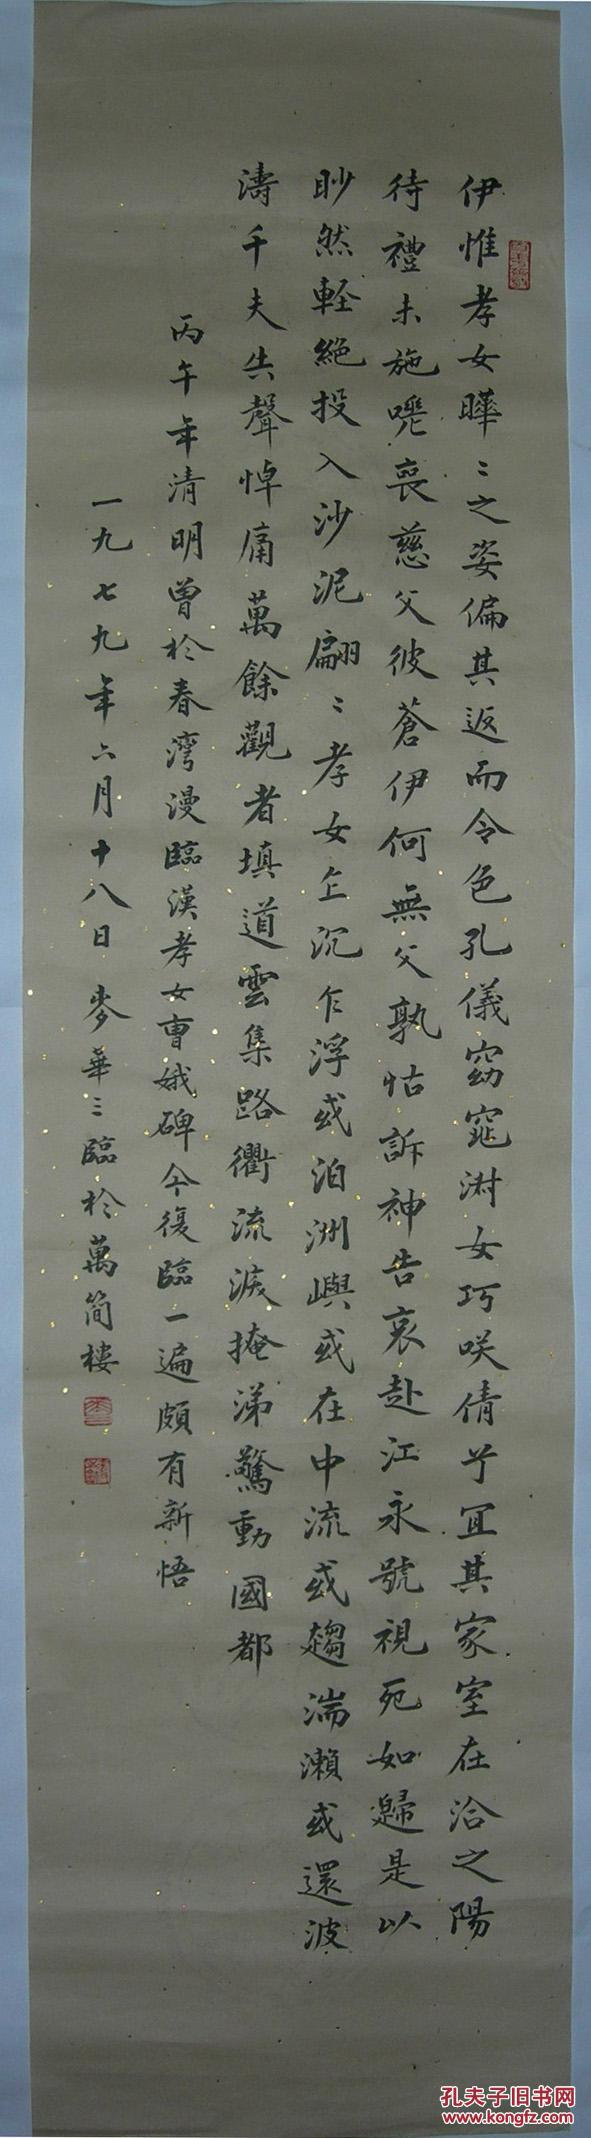 伊惟孝女曄〻之姿偏其返而令色孔儀窈窕淑女巧咲倩兮宜其家室在洽之陽
待禮未施嗟喪慈父彼蒼伊何無父孰怙訴神告哀赴江永號視死如歸是以
眇然輕絕投入沙泥翩〻孝女乍沉乍浮或泊洲嶼或在中流或趨湍瀨或還波
濤千夫失聲悼痛萬餘觀者填道雲集路衢流淚掩涕驚動國都
丙午年清明曾於春灣漫臨漢孝女曹娥碑今復臨一遍頗有新悟
一九七九年六月十八日 麥華三臨於萬簡樓
孔夫子旧书网
www.kongfz.com